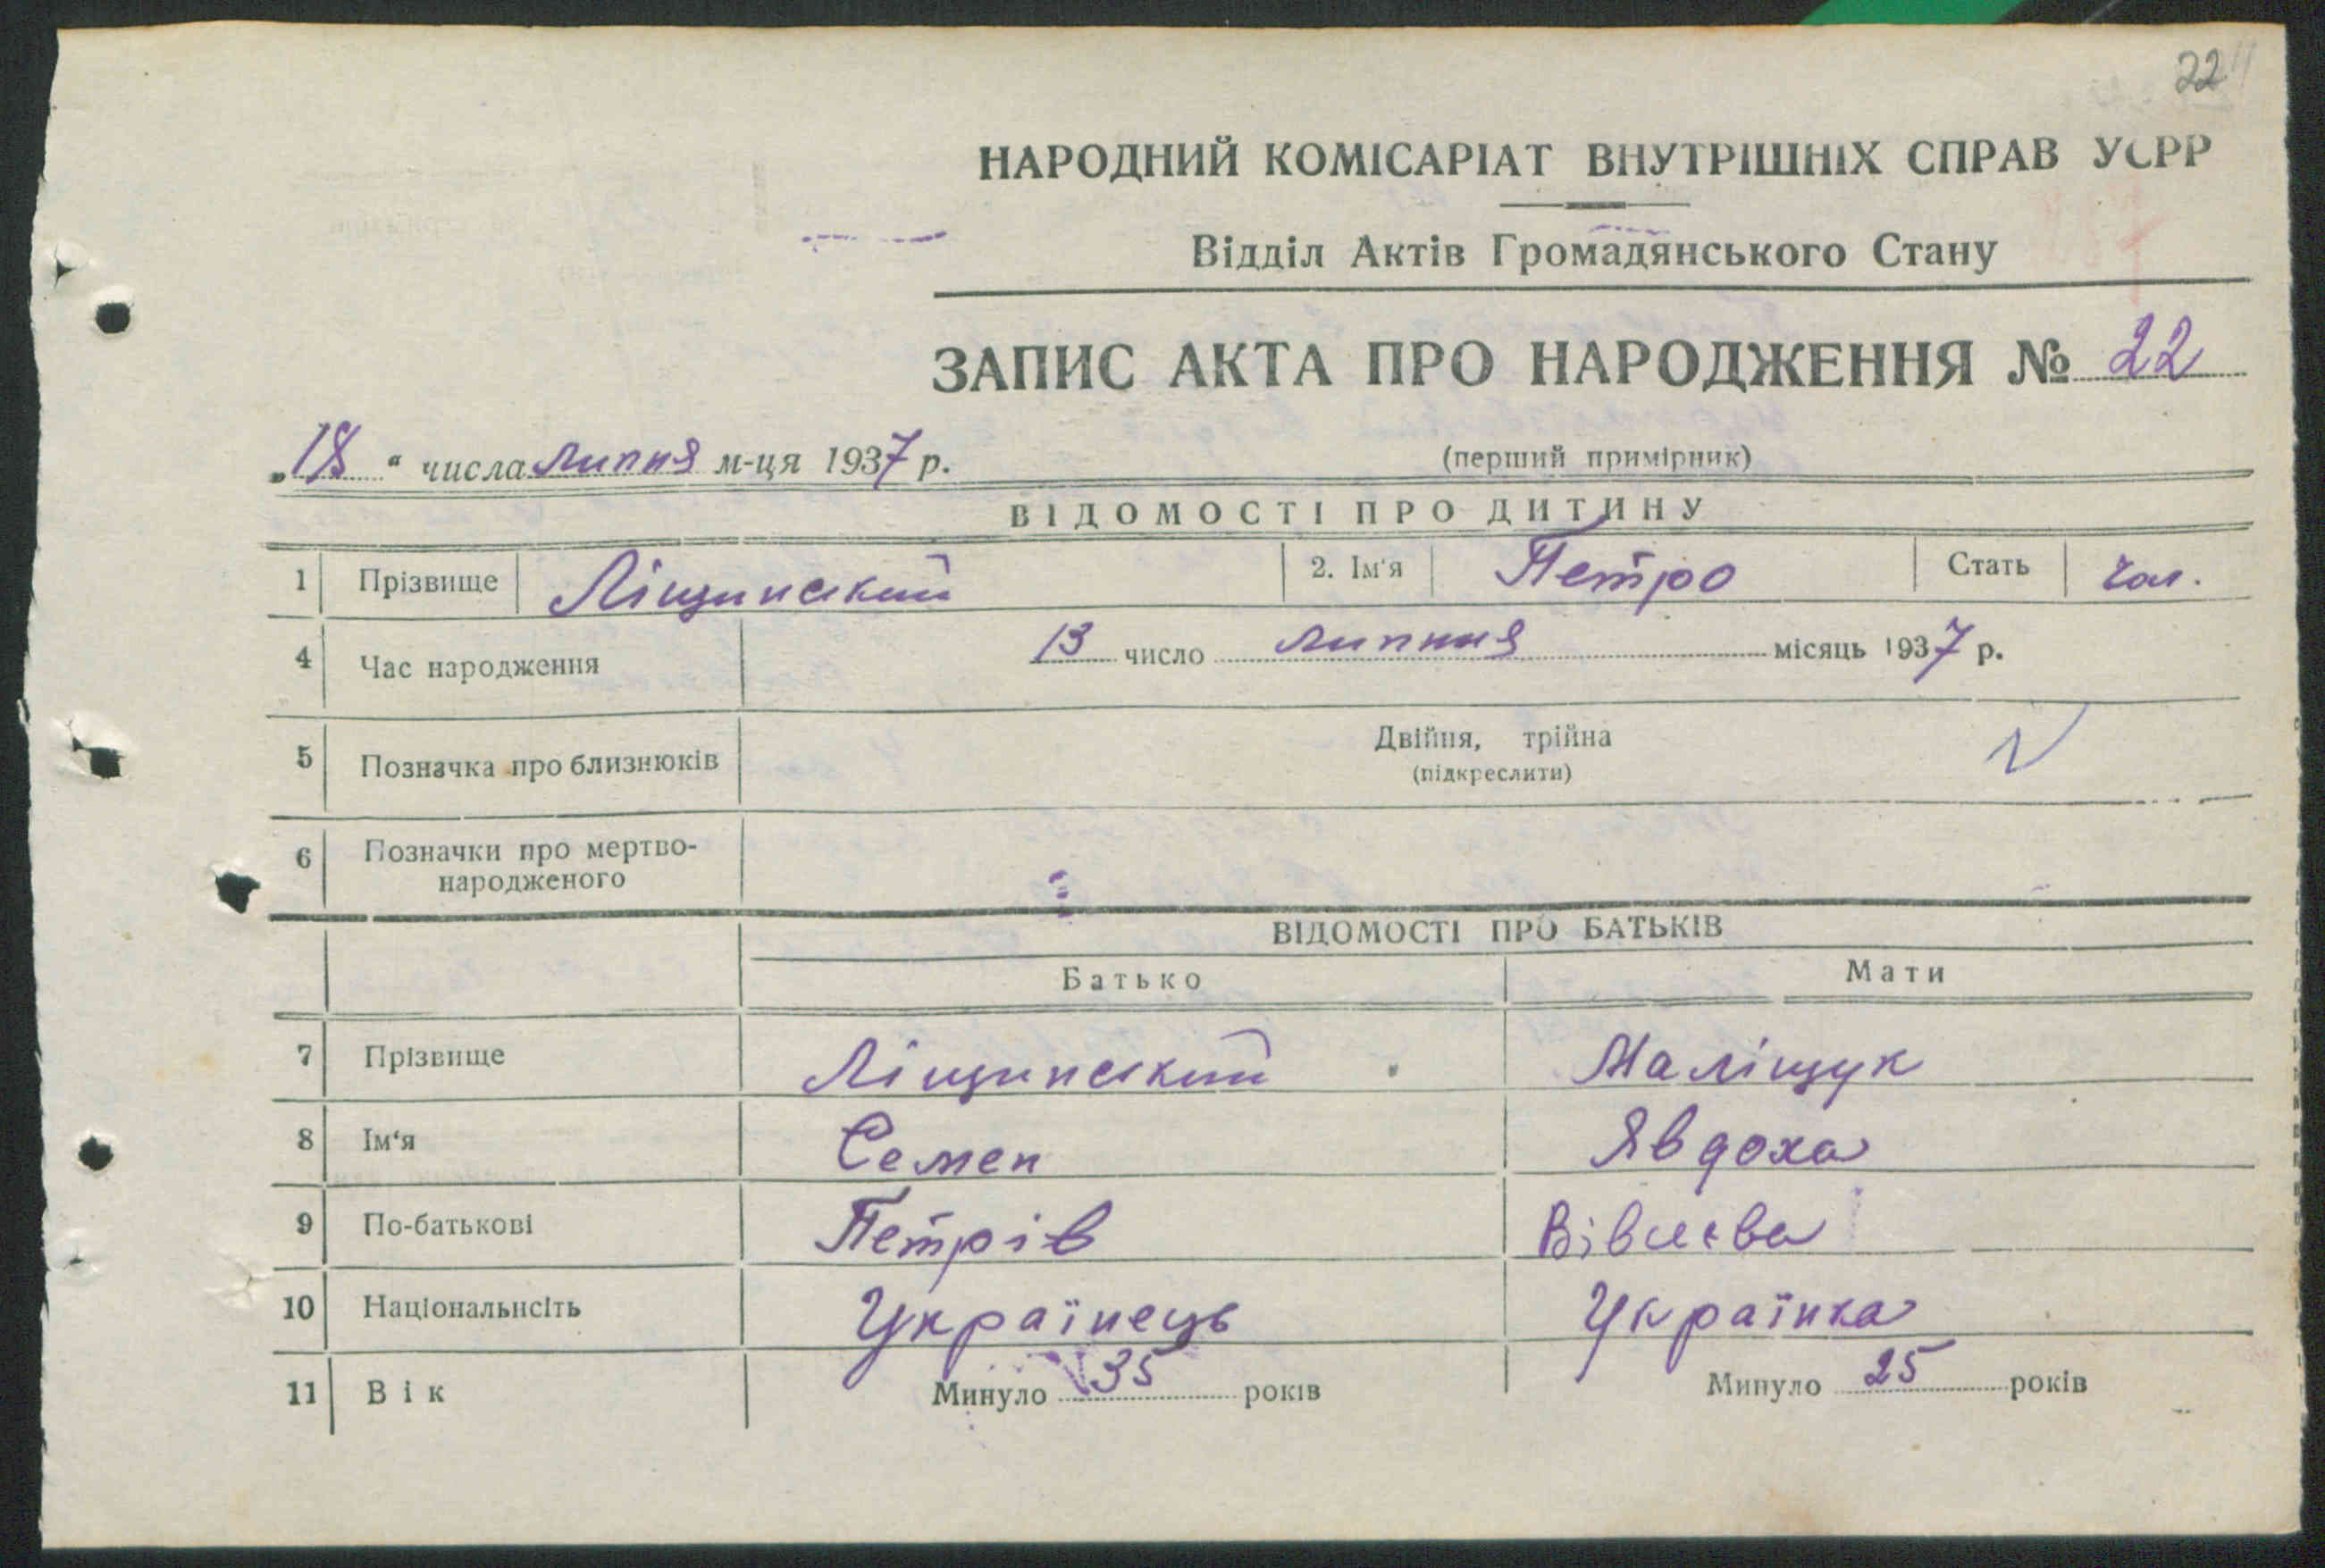 22
НАРОДНИЙ КОМІСАРІАТ ВНУТРІШНІХ СПРАВ УСРР
Відділ Актів Громадянського Стану
ЗАПИС АКТА ПРО НАРОДЖЕННЯ № 22
„18" числа липня м-ця 1937 р.
(перший примірник)
ВІДОМОСТІ ПРО ДИТИНУ
1 Прізвище Ліщинский 2. Ім'я Петро Стать чол.
4 Час народження 13 число липня місяць 1937 р.
5 Позначка про близнюків Двійня, трійна
(підкреслити)
6 Позначки про мертво-
народженого
ВІДОМОСТІ ПРО БАТЬКІВ
Батько Мати
7 Прізвище Ліщинский Маліщук
8 Ім'я Семен Явдоха
9 По-батькові Петрів
10 Національнсіть Українець Українка
11 Вік Минуло 35 років Минуло 25 років